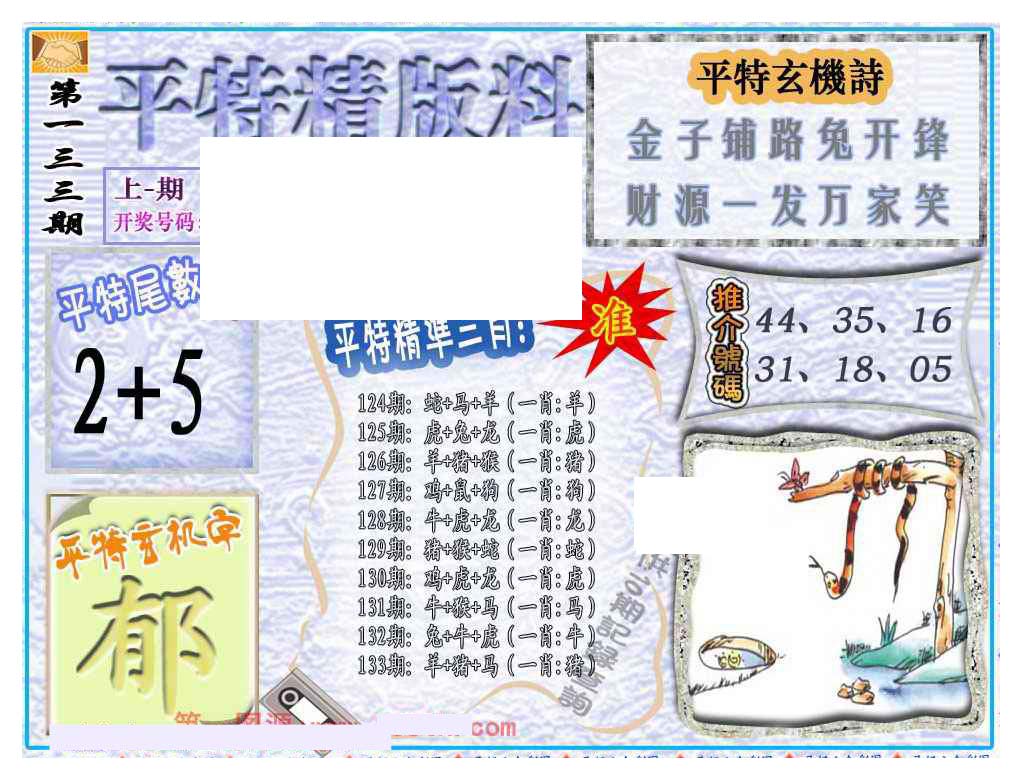 第一三三期
平特精版料
上-期
开奖号码:
平特玄機詩
金子铺路兔开锋
财源一发万家笑
平特尾數
2+5
平特精準三肖!
准
推介號碼
44、35、16
31、18、05
124期: 蛇+马+羊 (一肖:羊)
125期: 虎+兔+龙 (一肖:虎)
126期: 羊+猪+猴 (一肖:猪)
127期: 鸡+鼠+狗 (一肖:狗)
128期: 牛+虎+龙 (一肖:龙)
129期: 猪+猴+蛇 (一肖:蛇)
130期: 鸡+虎+龙 (一肖:虎)
131期: 牛+猴+马 (一肖:马)
132期: 兔+牛+虎 (一肖:牛)
133期: 羊+猪+马 (一肖:猪)
平特玄机字
郁
供多期記錄查詢
com